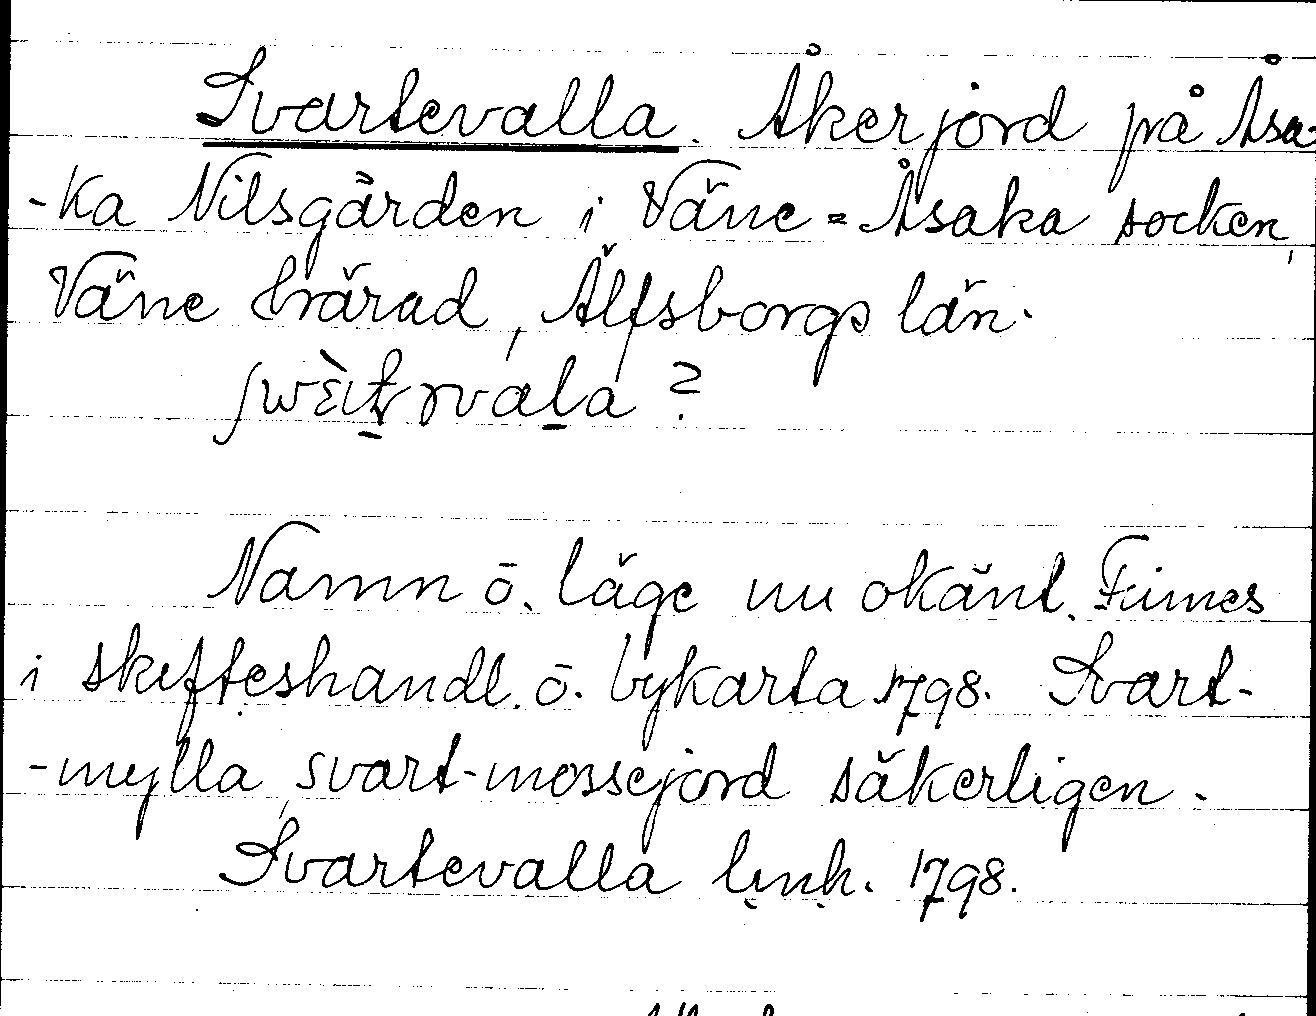 Svartevalla. Åkerjord på Åsa-
-ka Nilsgården i Väne-Åsaka socken,
Väne härad, Älfsborgs län.
?
Namn o. läge nu okänt. Finnes
i skifteshandl. o. bykarta 1798. Svart-
-mylla, svart-mossejord säkerligen.
Svartevalla lmh. 1798.